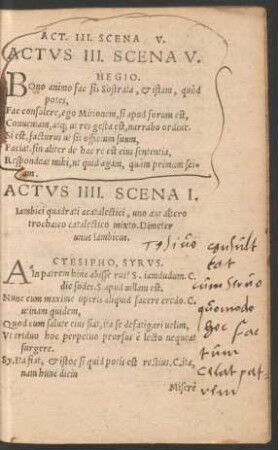 ACT. III. SCENA V.
ACTVS III. SCENA V.
HEGIO.
BOno animo fac sis Sostrata, & istam, quòd
potes,
Fac consolere, ego Micionem, si apud forum est,
Conueniam, atq; ut res gesta est, narrabo ordine.
Si est, facturus ut sit officium suum,
Faciat. sin aliter de hac re est eius sententia,
Respondeat mihi, ut quid agam, quàm primùm sci-
am.
ACTVS IIII. SCENA I.
Iambici quadrati acatalectici, uno aut altero
trochaico catalectico mixto. Dimeter
unus iambicus.
CTESIPHO, SYRVS.
AIn patrem hinc abisse rus? S. iamdudum. C.
dic sodes. S. apud uillam est.
Nunc cum maximè operis aliquid facere credo. C.
utinam quidem,
Quod cum salute eius fiat, ita se defatigari uelim,
Vt triduo hoc perpetuo prorsus è lecto nequeat
surgere.
Sy. Ita fiat, & istoc si quid potis est rectius. C. ita,
nam hunc diem
Miserè
consult
tat
cum seruo
quomodo
hoc fac
tum
celat pat
rem